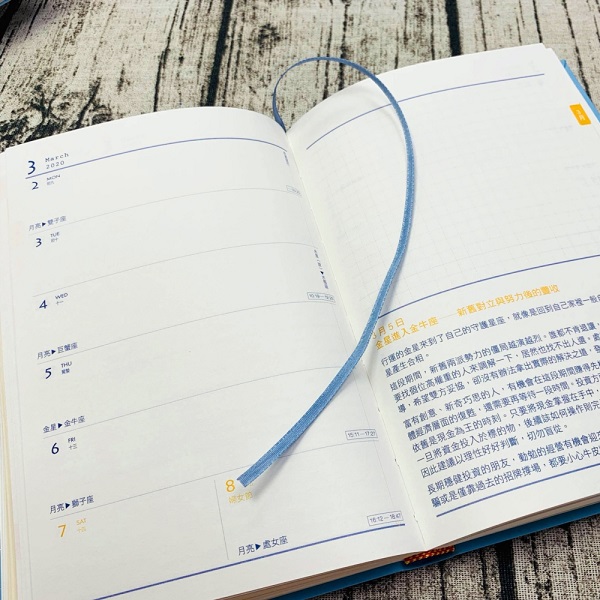 3 March
2020
2 MON
月亮▶雙子座
3 TUE
4 WED
十一
月亮▶巨蟹座
5 THU
驚蟄
金星▶金牛座
6 FRI
十三
月亮▶獅子座
7 SAT
十四
8
婦女節
月亮▶處女座
15:11—17:27
16:12—18:47
3月5日
金星進入金牛座——新舊對立與努力後的豐收
行運的金星來到了自己的守護星座，就像是回到自己家裡一般自
星產生合相。
這段期間，新舊兩派勢力的僵局越演越烈。誰都不肯退讓，
要找個位高權重的人來調解一下，居然也找不出人選，處
導，希望雙方妥協，卻沒有辦法拿出實際的解決之道，發
富有創意、新奇巧思的人，有機會在這段期間賺得先
體經濟層面的復甦，還需要再等待一段時間。投資方
依舊是現金為王的時刻。只要將現金掌握在手中，
一旦將資金投入於標的物，後續該如何操作則完
因此建議以理性好好判斷，切勿盲從。
長期穩健投資的朋友，動勉的經營有機會迎來
騙或是僅靠過去的招牌撐場，都要小心牛皮